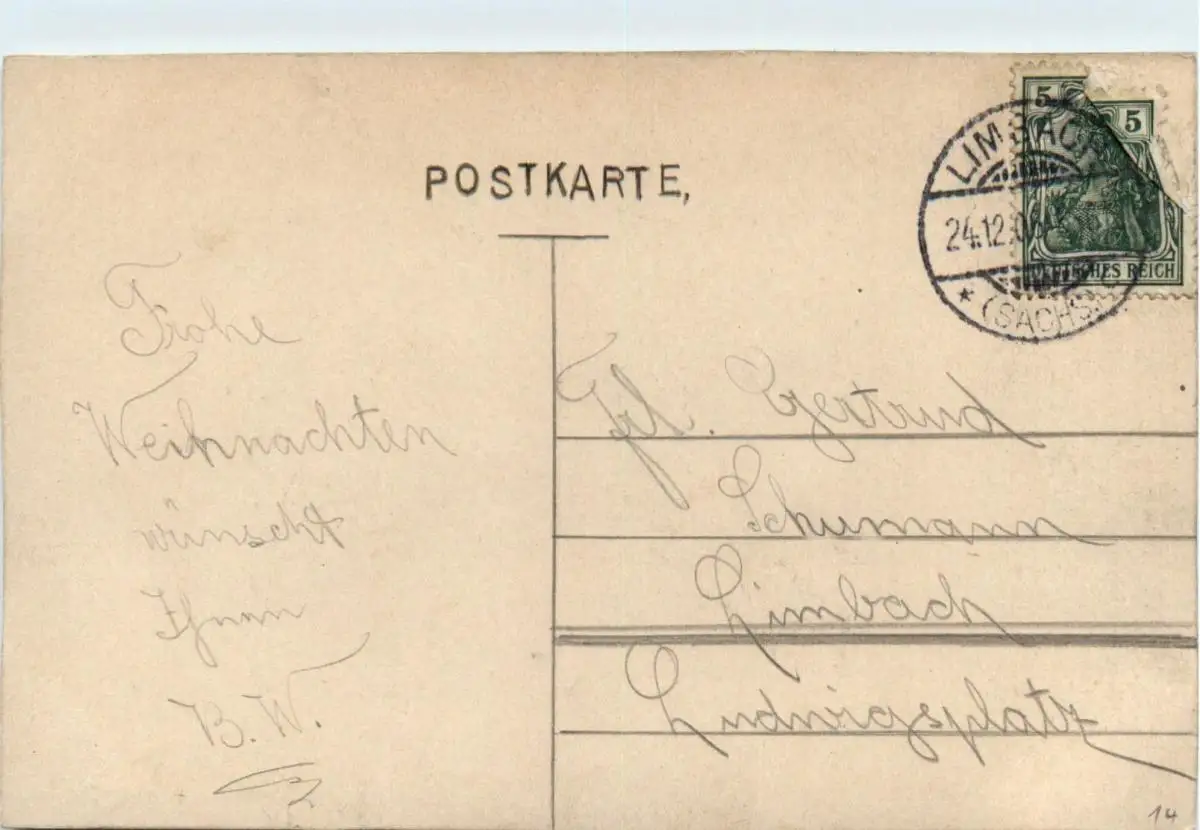 POSTKARTE,
5 5
LIMBACH
24.12.06
DEUTSCHES REICH
* (SACHS.)
Frohe
Weihnachten
wünscht
Ihnen
B. W.
Frl. Gertrud
Schumann
Limbach
Ludwigsplatz
14